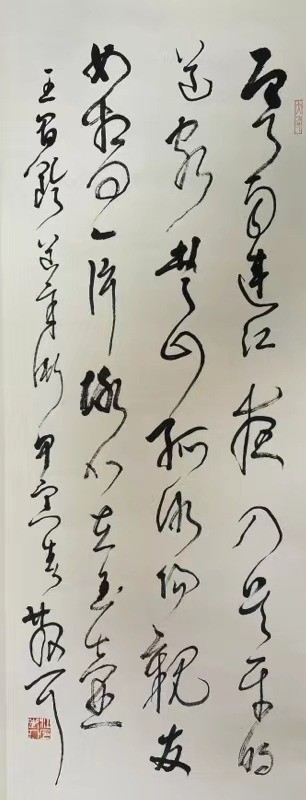 寒雨連江夜入吴平明
送客楚山孤洛陽親友
如相問一片冰心在玉壺
王昌齡送辛漸甲寅春散耳